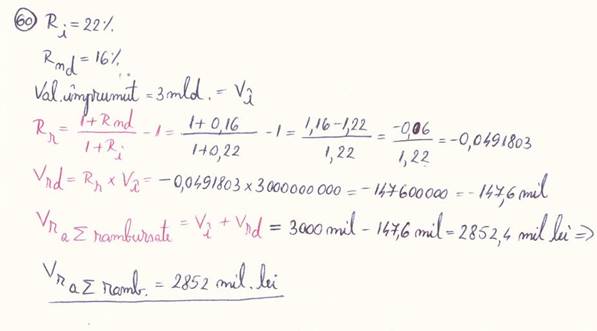 60 R_i = 22%
R_nd = 16%
Val. împrumut = 3 mld. = V_î
R_r = (1 + Rnd)/(1 + R_i) - 1 = (1 + 0,16)/(1 + 0,22) - 1 = (1,16 - 1,22)/1,22 = -0,06/1,22 = -0,0491803
V_rd = R_r × V_î = -0,0491803 × 3000000000 = -147600000 = -147,6 mil
V_r a Σ rambursate = V_î + V_rd = 3000 mil - 147,6 mil = 2852,4 mil lei =>
V_r a Σ ramb. = 2852 mil. lei